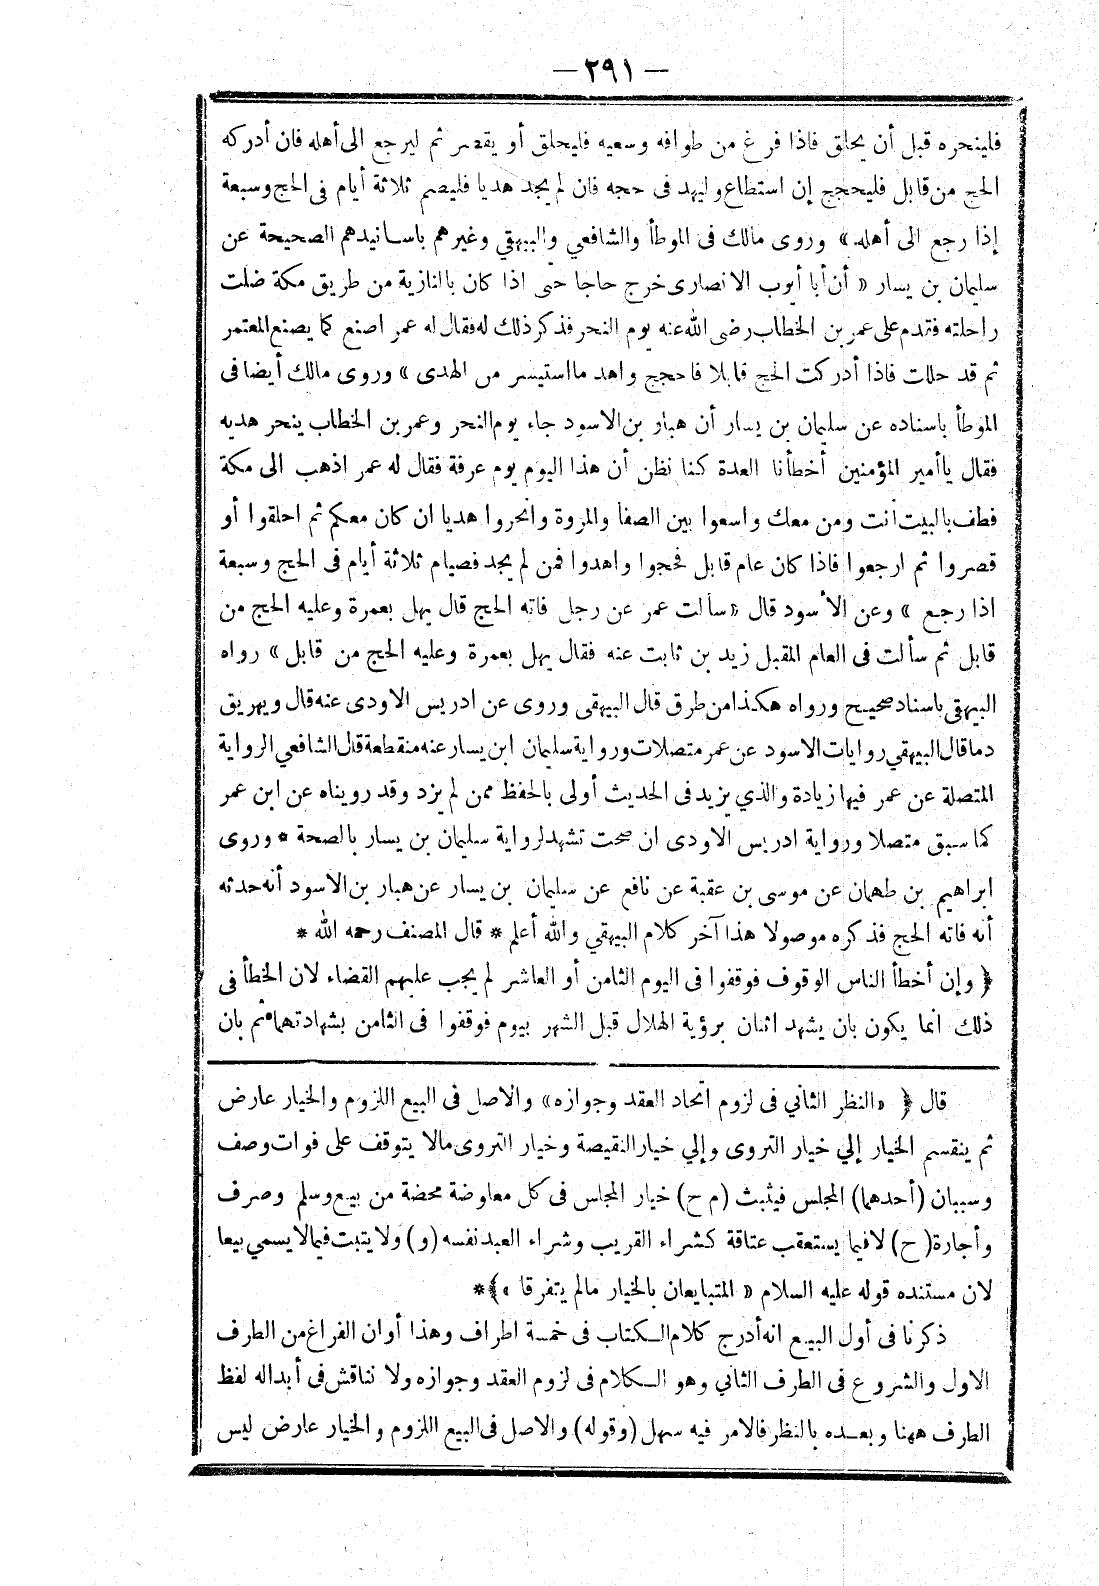 — ٢٩١ —
فلينحره قبل أن يحلق فاذا فرغ من طوافه وسعيه فليحلق أو يقصر ثم ليرجع الى أهله فان أدركه
الحج من قابل فليحجج إن استطاع وليهد فى حجه فان لم يجد هديا فليصم ثلاثة أيام فى الحج وسبعة
إذا رجع الى أهله » وروى مالك فى الموطأ والشافعي والبيهقي وغيرهم باسانيدهم الصحيحة عن
سليمان بن يسار « أن أبا أيوب الانصارى خرج حاجا حتى اذا كان بالنازية من طريق مكة ضلت
راحلته فقدم على عمر بن الخطاب رضى الله عنه يوم النحر فذكر ذلك له فقال له عمر اصنع كما يصنع المعتمر
ثم قد حللت فاذا أدركت الحج قابلا فاحجج واهد ما استيسر من الهدى » وروى مالك أيضا فى
الموطأ باسناده عن سليمان بن يسار أن هبار بن الاسود جاء يوم النحر وعمر بن الخطاب ينحر هديه
فقال ياأمير المؤمنين أخطأنا العدة كنا نظن أن هذا اليوم يوم عرفة فقال له عمر اذهب الى مكة
فطف بالبيت انت ومن معك واسعوا بين الصفا والمروة وانحروا هديا ان كان معكم ثم احلقوا أو
قصروا ثم ارجعوا فاذا كان عام قابل فحجوا واهدوا فمن لم يجد فصيام ثلاثة أيام فى الحج وسبعة
اذا رجع » وعن الأسود قال « سألت عمر عن رجل فاته الحج قال يهل بعمرة وعليه الحج من
قابل ثم سألت فى العام المقبل زيد بن ثابت عنه فقال يهل بعمرة وعليه الحج من قابل » رواه
البيهقى باسناد صحيح ورواه هكذا من طرق قال البيهقى وروى عن ادريس الاودى عنه قال ويهريق
دما قال البيهقي روايات الاسود عن عمر متصلات ورواية سليمان ابن يسار عنه منقطعة قال الشافعي الرواية
المتصلة عن عمر فيها زيادة والذي يزيد فى الحديث أولى بالحفظ ممن لم يزد وقد رويناه عن ابن عمر
كما سبق متصلا ورواية ادريس الاودى ان صحت تشهد لرواية سليمان بن يسار بالصحة * وروى
ابراهيم بن طهمان عن موسى بن عقبة عن نافع عن سليمان بن يسار عن هبار بن الاسود أنه حدثه
أنه فاته الحج فذكره موصولا هذا آخر كلام البيهقي والله أعلم * قال المصنف رحمه الله *
﴿ وإن أخطأ الناس الوقوف فوقفوا فى اليوم الثامن أو العاشر لم يجب عليهم القضاء لان الخطأ فى
ذلك انما يكون بان يشهد اثنان برؤية الهلال قبل الشهر بيوم فوقفوا فى الثامن بشهادتهما ثم بان
قال ﴿ « النظر الثاني فى لزوم اتحاد العقد وجوازه » والاصل فى البيع اللزوم والخيار عارض
ثم ينقسم الخيار إلي خيار التروى وإلي خيار النقيصة وخيار التروى مالا يتوقف على فوات وصف
وسببان (أحدهما) المجلس فيثبت (م ح) خيار المجلس فى كل معاوضة محضة من بيع وسلم وصرف
وأجارة (ح) لا فيما يستعقب عتاقة كشراء القريب وشراء العبد نفسه (و) ولا يثبت فيما لا يسمي بيعا
لان مستنده قوله عليه السلام « المتبايعان بالخيار مالم يتفرقا » ﴾*
ذكرنا فى أول البيع انه أدرج كلام الكتاب فى خمسة اطراف وهذا أوان الفراغ من الطرف
الاول والشروع فى الطرف الثاني وهو الكلام فى لزوم العقد وجوازه ولا نناقش فى أبداله لفظ
الطرف ههنا وبعده بالنظر فالامر فيه سهل (وقوله) والاصل فى البيع اللزوم والخيار عارض ليس